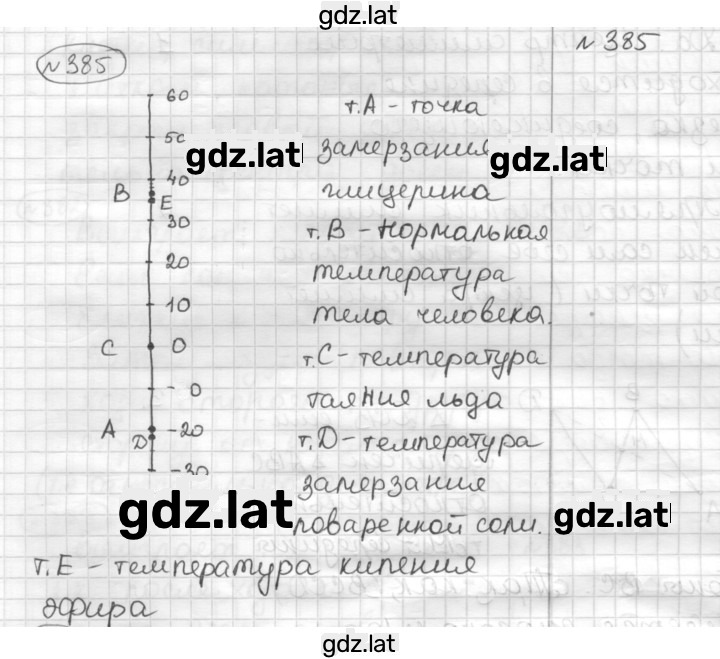 gdz.lat
№ 385
№ 385
60
50
40
B E
30
20
10
C 0
- 0
A -20
D
-30
т.А - точка
замерзания
глицерина
т.В - нормальная
температура
тела человека.
т.С - температура
таяния льда
т.D - температура
замерзания
поваренной соли.
т.Е - температура кипения
эфира
gdz.lat
gdz.lat
gdz.lat
gdz.lat
gdz.lat